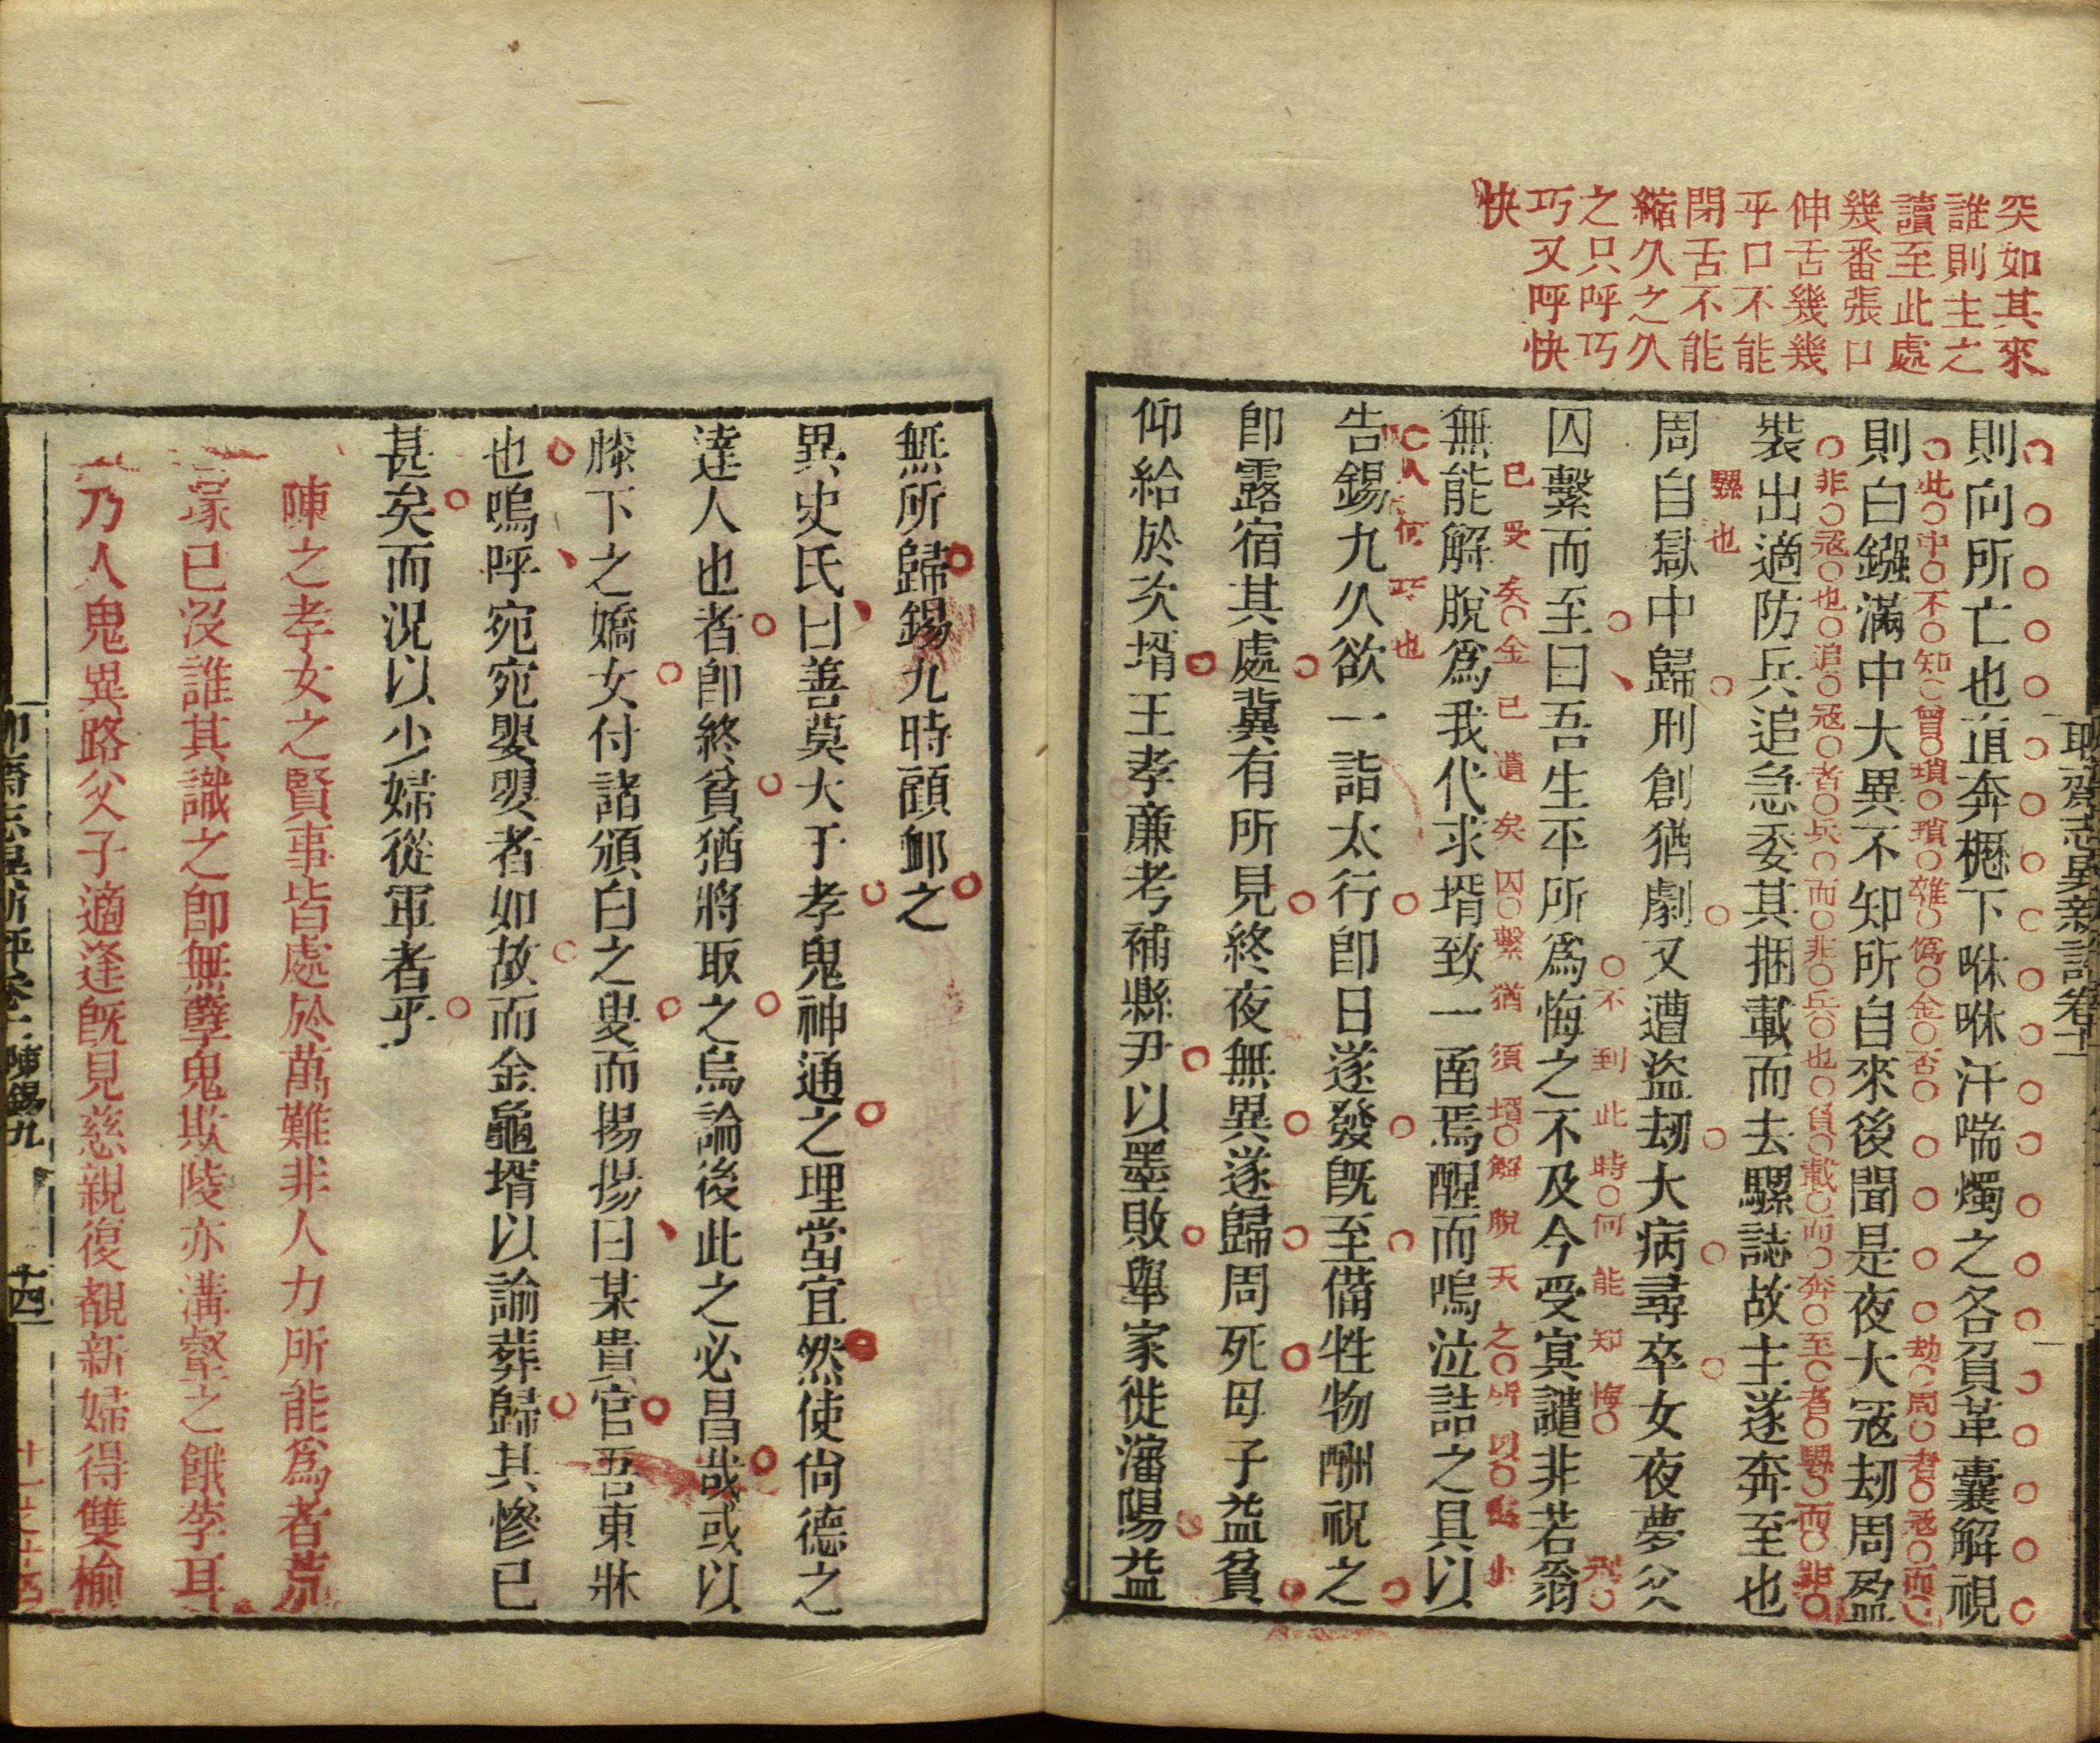 突如其來
誰則主之
讀至此處
幾番張口
伸舌幾幾
乎口不能
閉舌不能
縮久之久
之只呼巧
巧又呼快
快
聊齋志異新評卷十一
則向所亡也直奔櫪下咻咻汗喘燭之各負革囊解視
則白鏹滿中大異不知所自來後聞是夜大寇刼周盈
此中不知曾瑣瑣雜偽金否
劫周者寇而
裝出適防兵追急委其捆載而去騾誌故主遂奔至也
非寇也追寇者兵而非兵也負載而奔至者騾而非
騾也
周自獄中歸刑創猶劇又遭盜刼大病尋卒女夜夢父
囚繫而至曰吾生平所為悔之不及今受冥譴非若翁
不到此時何能知悔
無能解脫為我代求壻致一函焉醒而嗚泣詰之具以
已受矣金已遺矣囚繫猶須壻解脫天之
告錫九久欲一詣太行卽日遂發旣至備牲物酬祝之
卽露宿其處冀有所見終夜無異遂歸周死母子益貧
仰給於次壻王孝廉考補縣尹以墨敗舉家徙瀋陽益
無所歸錫九時顧卹之
異史氏曰善莫大于孝鬼神通之理當宜然使尙德之
達人也者卽終貧猶將取之烏論後此之必昌哉或以
膝下之嬌女付諸頒白之叟而揚揚曰某貴官吾東牀
也嗚呼宛宛嬰嬰者如故而金龜壻以諭葬歸其慘已
甚矣而況以少婦從軍者乎
陳之孝女之賢事皆處於萬難非人力所能為者荒
冢已沒誰其識之卽無孽鬼欺陵亦溝壑之餓莩耳
乃人鬼異路父子適逢旣見慈親復覩新婦得雙榆
陳錫九
十四